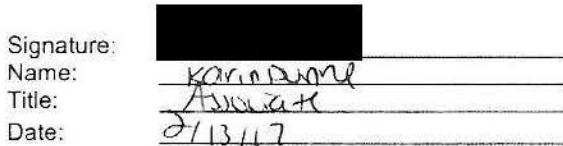 Signature:
Name: Karin Dunne
Title: Associate
Date: 2/13/17